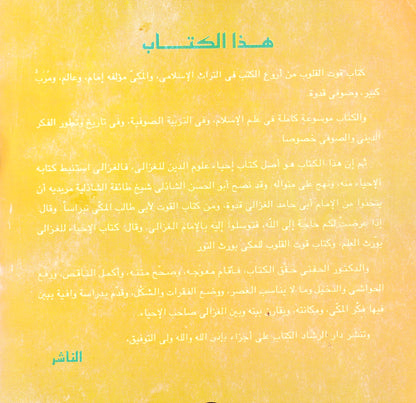 هذا الكتاب
كتاب قوت القلوب من أروع الكتب فى التراث الإسلامى، والمكىّ مؤلفه إمام، وعالم، ومُربٍّ
كبير، وصوفى قدوة.
والكتاب موسوعة كاملة فى علم الإسلام، وفى التربية الصوفية، وفى تاريخ وتطور الفكر
الدينى والصوفى خصوصاً.
ثم إن هذا الكتاب هو أصل كتاب إحياء علوم الدين للغزالى، فالغزالى استنبط كتابه
الإحياء منه، ونهج على منواله. وقد نصح أبو الحسن الشاذلى شيخ طائفة الشاذلية مريديه أن
يتخذوا من الإمام أبى حامد الغزالى قدوة، ومن كتاب القوت لأبى طالب المكى نبراساً. وقال:
إذا عرضت لكم حاجة إلى الله، فتوسلوا إليه بالإمام الغزالى. وقال: كتاب الإحياء للغزالى
يورث العلم، وكتاب قوت القلوب للمكى يورث النور.
والدكتور الحفنى حقّق الكتاب، فأقام معوجه، وصحح متنه، وأكمل الناقص، ورفع
الحواشى والدخيل وما لا يناسب العصر، ووضع الفقرات والشكْل، وقدّم بدراسة وافية يبين
فيها فكر المكّى، ومكانته، ويقارن بينه وبين الغزالى صاحب الإحياء.
وتنشر دار الرشاد الكتاب على أجزاء بإذن الله والله ولى التوفيق.
الناشر